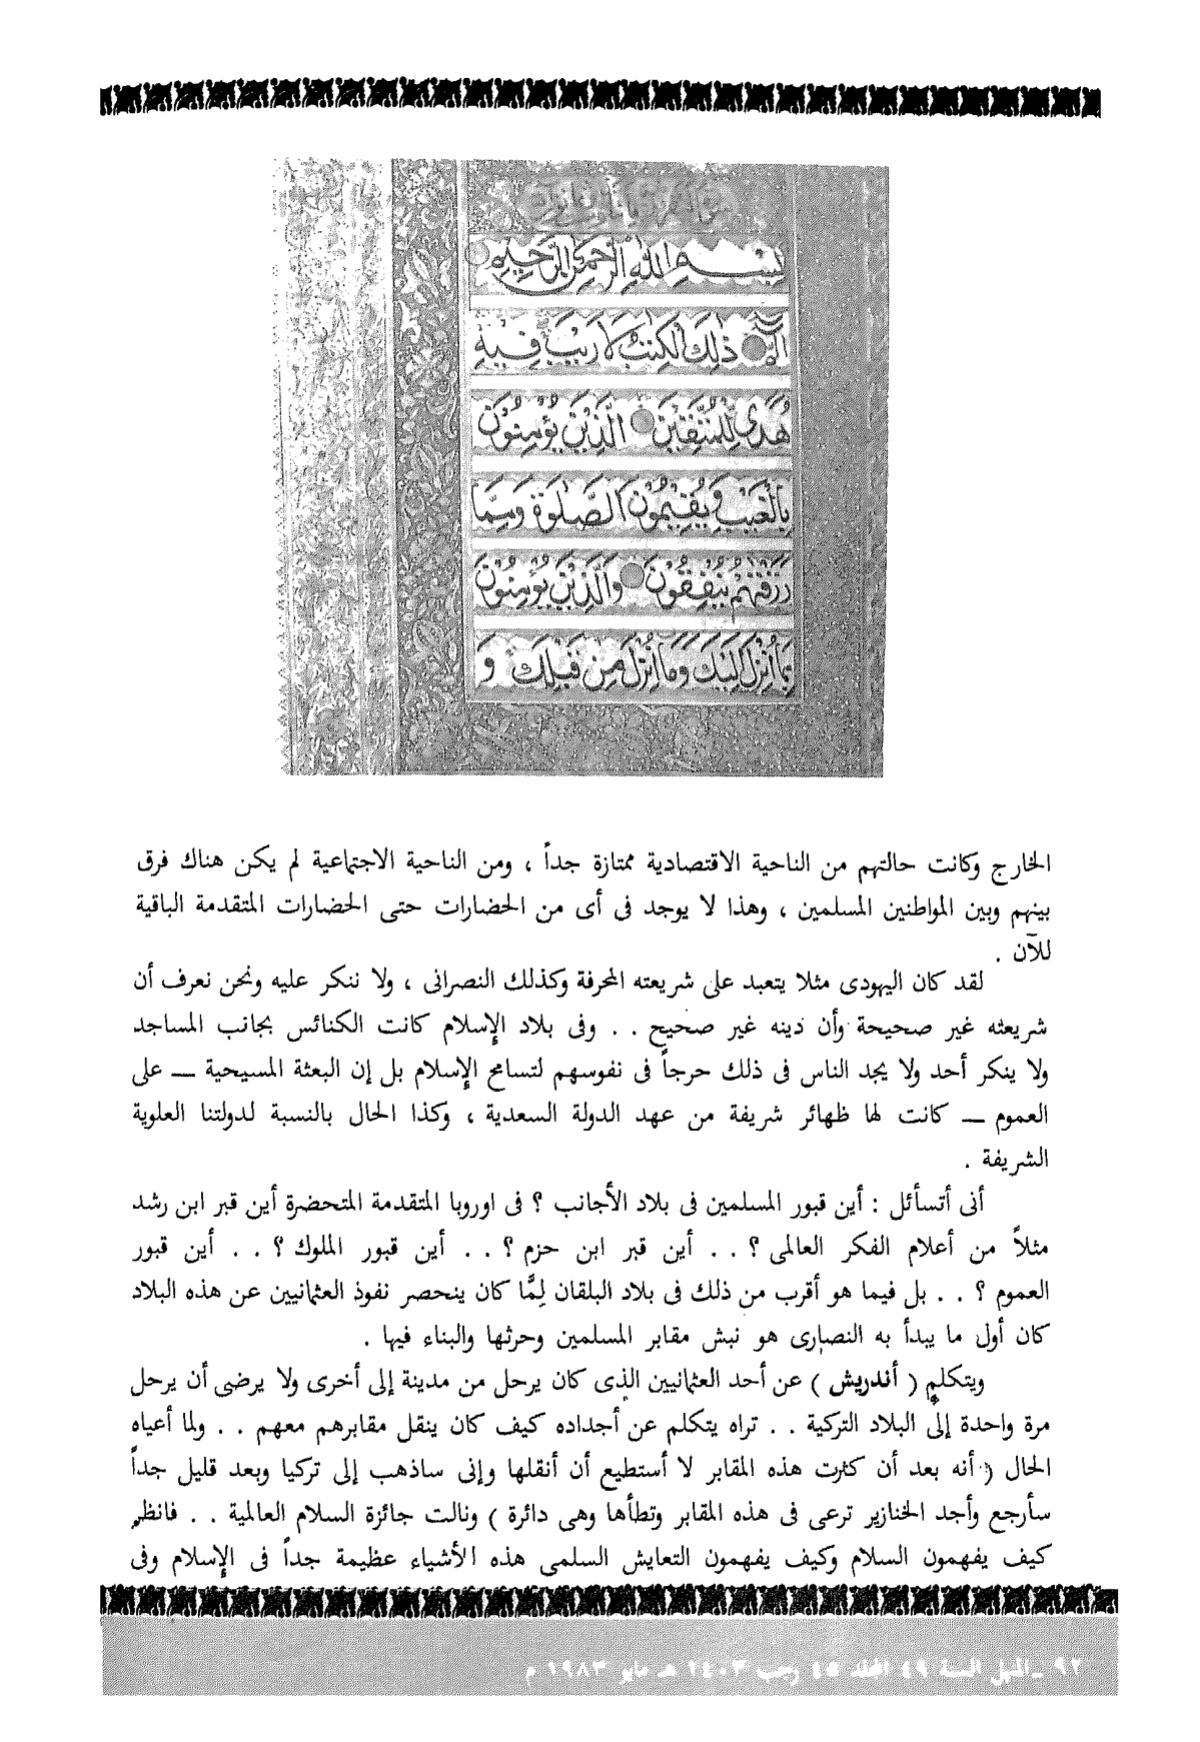 بسم الله الرحمن الرحيم
الم ذلك الكتب لا ريب فيه
هدى للمتقين الذين يؤمنون
بالغيب ويقيمون الصلوة ومما
رزقنهم ينفقون والذين يؤمنون
بما أنزل إليك وما أنزل من قبلك و
الخارج وكانت حالتهم من الناحية الاقتصادية ممتازة جداً ، ومن الناحية الاجتماعية لم يكن هناك فرق
بينهم وبين المواطنين المسلمين ، وهذا لا يوجد فى أى من الحضارات حتى الحضارات المتقدمة الباقية
للآن .
لقد كان اليهودى مثلا يتعبد على شريعته المحرفة وكذلك النصرانى ، ولا ننكر عليه ونحن نعرف أن
شريعته غير صحيحة وأن دينه غير صحيح . . وفى بلاد الإسلام كانت الكنائس بجانب المساجد
ولا ينكر أحد ولا يجد الناس فى ذلك حرجاً فى نفوسهم لتسامح الإسلام بل إن البعثة المسيحية ــ على
العموم ــ كانت لها ظهائر شريفة من عهد الدولة السعدية ، وكذا الحال بالنسبة لدولتنا العلوية
الشريفة .
أنى أتسأئل : أين قبور المسلمين فى بلاد الأجانب ؟ فى اوروبا المتقدمة المتحضرة أين قبر ابن رشد
مثلاً من أعلام الفكر العالمى ؟ . . أين قبر ابن حزم ؟ . . أين قبور الملوك ؟ . . أين قبور
العموم ؟ . . بل فيما هو أقرب من ذلك فى بلاد البلقان لِمَّا كان ينحصر نفوذ العثمانيين عن هذه البلاد
كان أول ما يبدأ به النصارى هو نبش مقابر المسلمين وحرثها والبناء فيها .
ويتكلم ( أندريش ) عن أحد العثمانيين الذى كان يرحل من مدينة إلى أخرى ولا يرضى أن يرحل
مرة واحدة إلى البلاد التركية . . تراه يتكلم عن أجداده كيف كان ينقل مقابرهم معهم . . ولما أعياه
الحال ( أنه بعد أن كثرت هذه المقابر لا أستطيع أن أنقلها وإنى ساذهب إلى تركيا وبعد قليل جداً
سأرجع وأجد الخنازير ترعى فى هذه المقابر وتطأها وهى دائرة ) ونالت جائزة السلام العالمية . . فانظر
كيف يفهمون السلام وكيف يفهمون التعايش السلمى هذه الأشياء عظيمة جداً فى الإسلام وفى
٩٢ ــ المنهل السنة ٤٩ المجلد ٤٥ رجب ١٤٠٣ هـ مايو ١٩٨٣ م